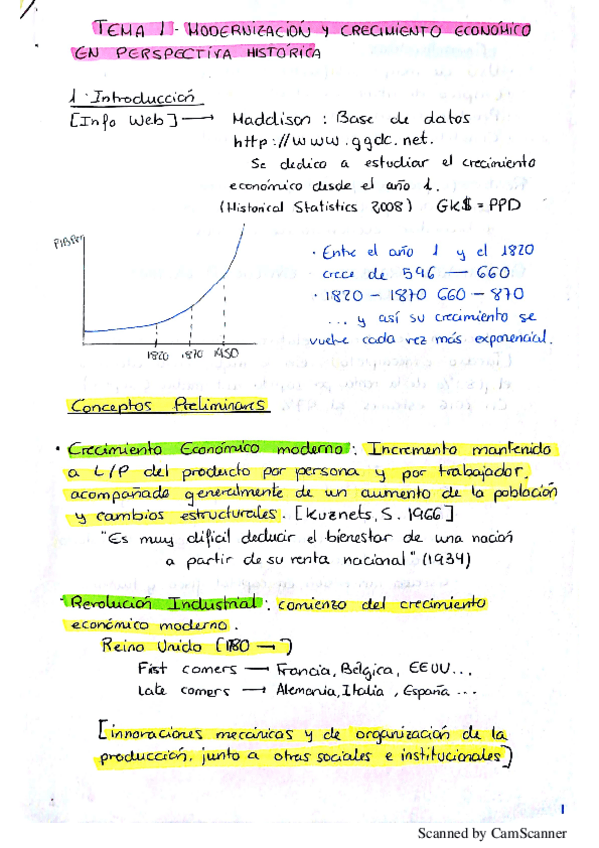 TEMA 1 - MODERNIZACIÓN Y CRECIMIENTO ECONÓMICO
EN PERSPECTIVA HISTÓRICA
1. Introducción
[Info Web] → Maddison : Base de datos
http://www.ggdc.net.
Se dedico a estudiar el crecimiento
económico desde el año 1.
(Historical Statistics 2008) GK$ = PPD
PIBper
1820 1870 1950
· Entre el año 1 y el 1820
crece de 596 — 660
· 1820 - 1870 660 - 870
... y así su crecimiento se
vuelve cada vez más exponencial.
Conceptos Preliminares
· Crecimiento Económico moderno : Incremento mantenido
a L/P del producto por persona y por trabajador,
acompañado generalmente de un aumento de la población
y cambios estructurales. [Kuznets, S. 1966]
"Es muy dificil deducir el bienestar de una nación
a partir de su renta nacional" (1934)
· Revolución Industrial : comienzo del crecimiento
económico moderno.
Reino Unido (1780 →)
Fist comers → Francia, Bélgica, EEUU...
Late comers → Alemania, Italia, España ...
[innovaciones mecánicas y de organización de la
producción, junto a otras sociales e institucionales]
1
Scanned by CamScanner